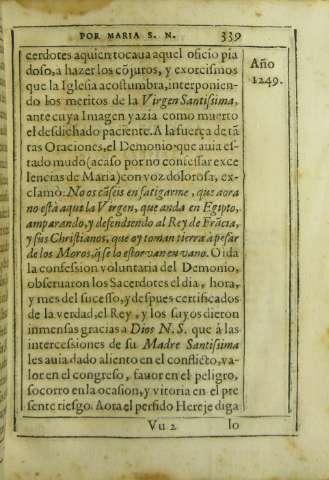 POR MARIA S. N. 339
Año
1249.
cerdotes aquien tocaua aquel oficio pia
doso, a hazer los cõjuros, y exorcismos
que la Iglesia acostumbra, interponien-
do los meritos de la Virgen Santissima,
ante cuya Imagen yazia como muerto
el desdichado paciente. A la fuerça de tã
tas Oraciones, el Demonio que auia es-
tado mudo (acaso por no confessar exce
lencias de Maria) con voz dolorosa, ex-
clamò: No os cãseis en fatigarme, que aora
no està aqui la Virgen, que anda en Egipto,
amparando, y defendiendo al Rey de Frãcia,
y sus Christianos, que oy toman tierra à pesar
de los Moros, q̃ se lo estorvan en vano. Oida
la confession voluntaria del Demonio,
obseruaron los Sacerdotes el dia, hora,
y mes del sucesso, y despues certificados
de la verdad, el Rey, y los suyos dieron
inmensas gracias a Dios N. S. que à las
intercessiones de su Madre Santissima
les auia dado aliento en el conflicto, va-
lor en el congreso, fauor en el peligro,
socorro en la ocasion, y vitoria en el pre
sente riesgo. Aora el perfido Hereje diga
Vu 2 lo